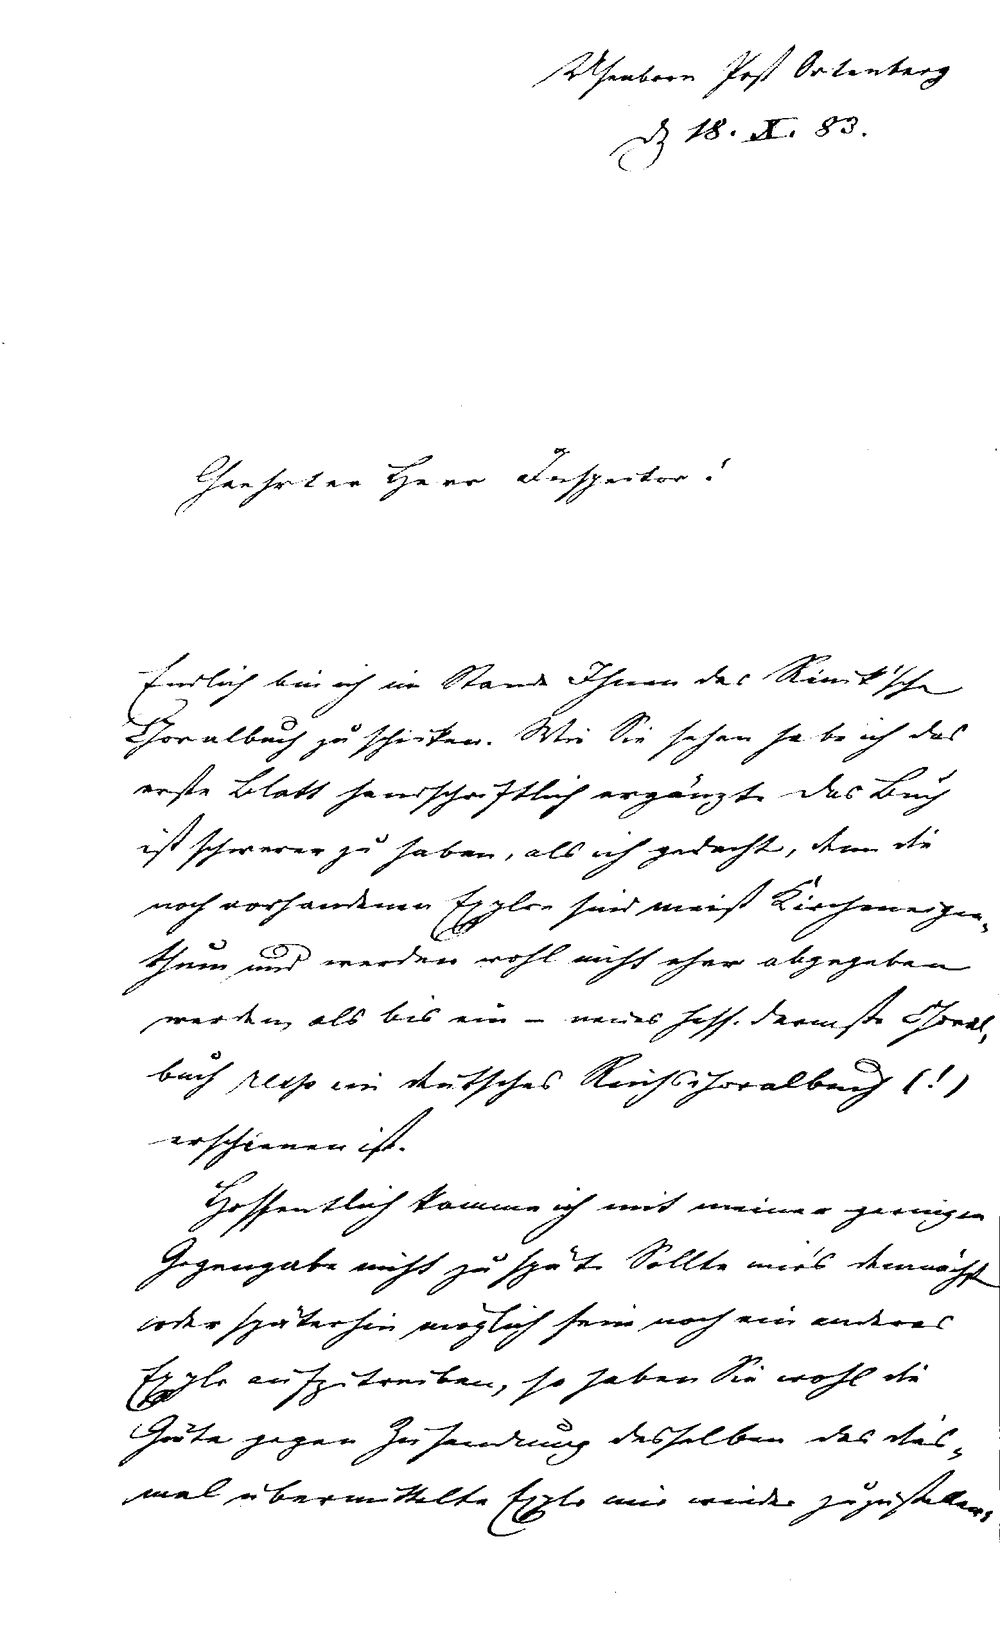 Usenborn Post Ortenberg
d 18. X. 83.
Geehrter Herr Inspector!
Endlich bin ich im Stande Ihnen das Rinck'sche
Choralbuch zu schicken. Wie Sie sehen habe ich das
erste Blatt handschriftlich ergänzt. Das Buch
ist schwerer zu haben, als ich gedacht, denn die
noch vorhandenen Explre sind meist Kircheneigen-
thum und werden wohl nicht eher abgegeben
werden, als bis ein – neues hess. darmst. Choral-
buch resp ein deutsches Reichschoralbuch (!)
erschienen ist.
Hoffentlich komme ich mit meiner geringen
Gegengabe nicht zu spät. Sollte mir's demnächst
oder späterhin möglich sein noch ein anderes
Explr aufzutreiben, so haben Sie wohl die
Güte gegen Zusendung desselben das dies-
mal übermittelte Explr mir wieder zuzustellen,